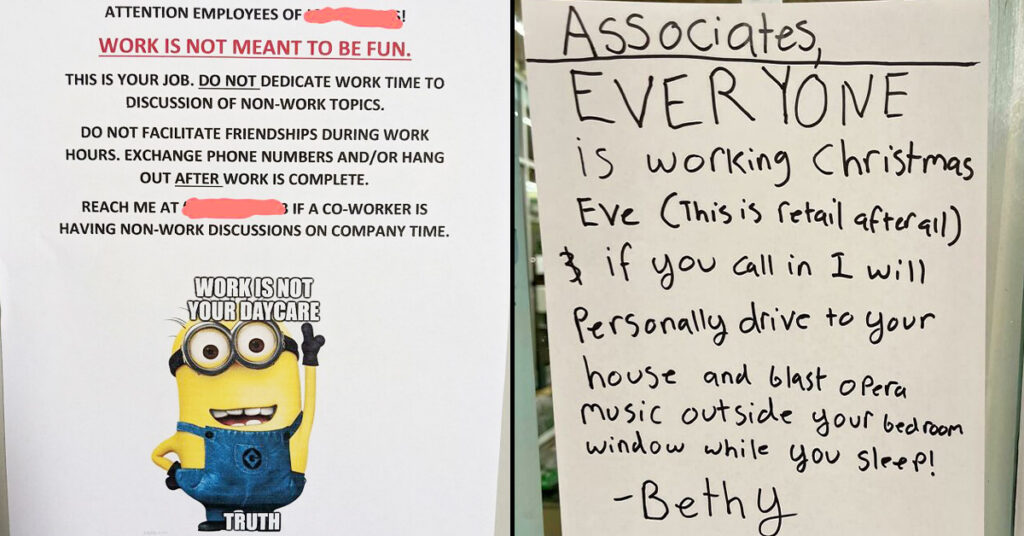 ATTENTION EMPLOYEES OF !
WORK IS NOT MEANT TO BE FUN.
THIS IS YOUR JOB. DO NOT DEDICATE WORK TIME TO
DISCUSSION OF NON-WORK TOPICS.
DO NOT FACILITATE FRIENDSHIPS DURING WORK
HOURS. EXCHANGE PHONE NUMBERS AND/OR HANG
OUT AFTER WORK IS COMPLETE.
REACH ME AT IF A CO-WORKER IS
HAVING NON-WORK DISCUSSIONS ON COMPANY TIME.
WORK IS NOT
YOUR DAYCARE
TRUTH
Associates,
EVERYONE
is working Christmas
Eve (This is retail after all)
& if you call in I will
Personally drive to your
house and blast opera
music outside your bedroom
window while you sleep!
-Bethy